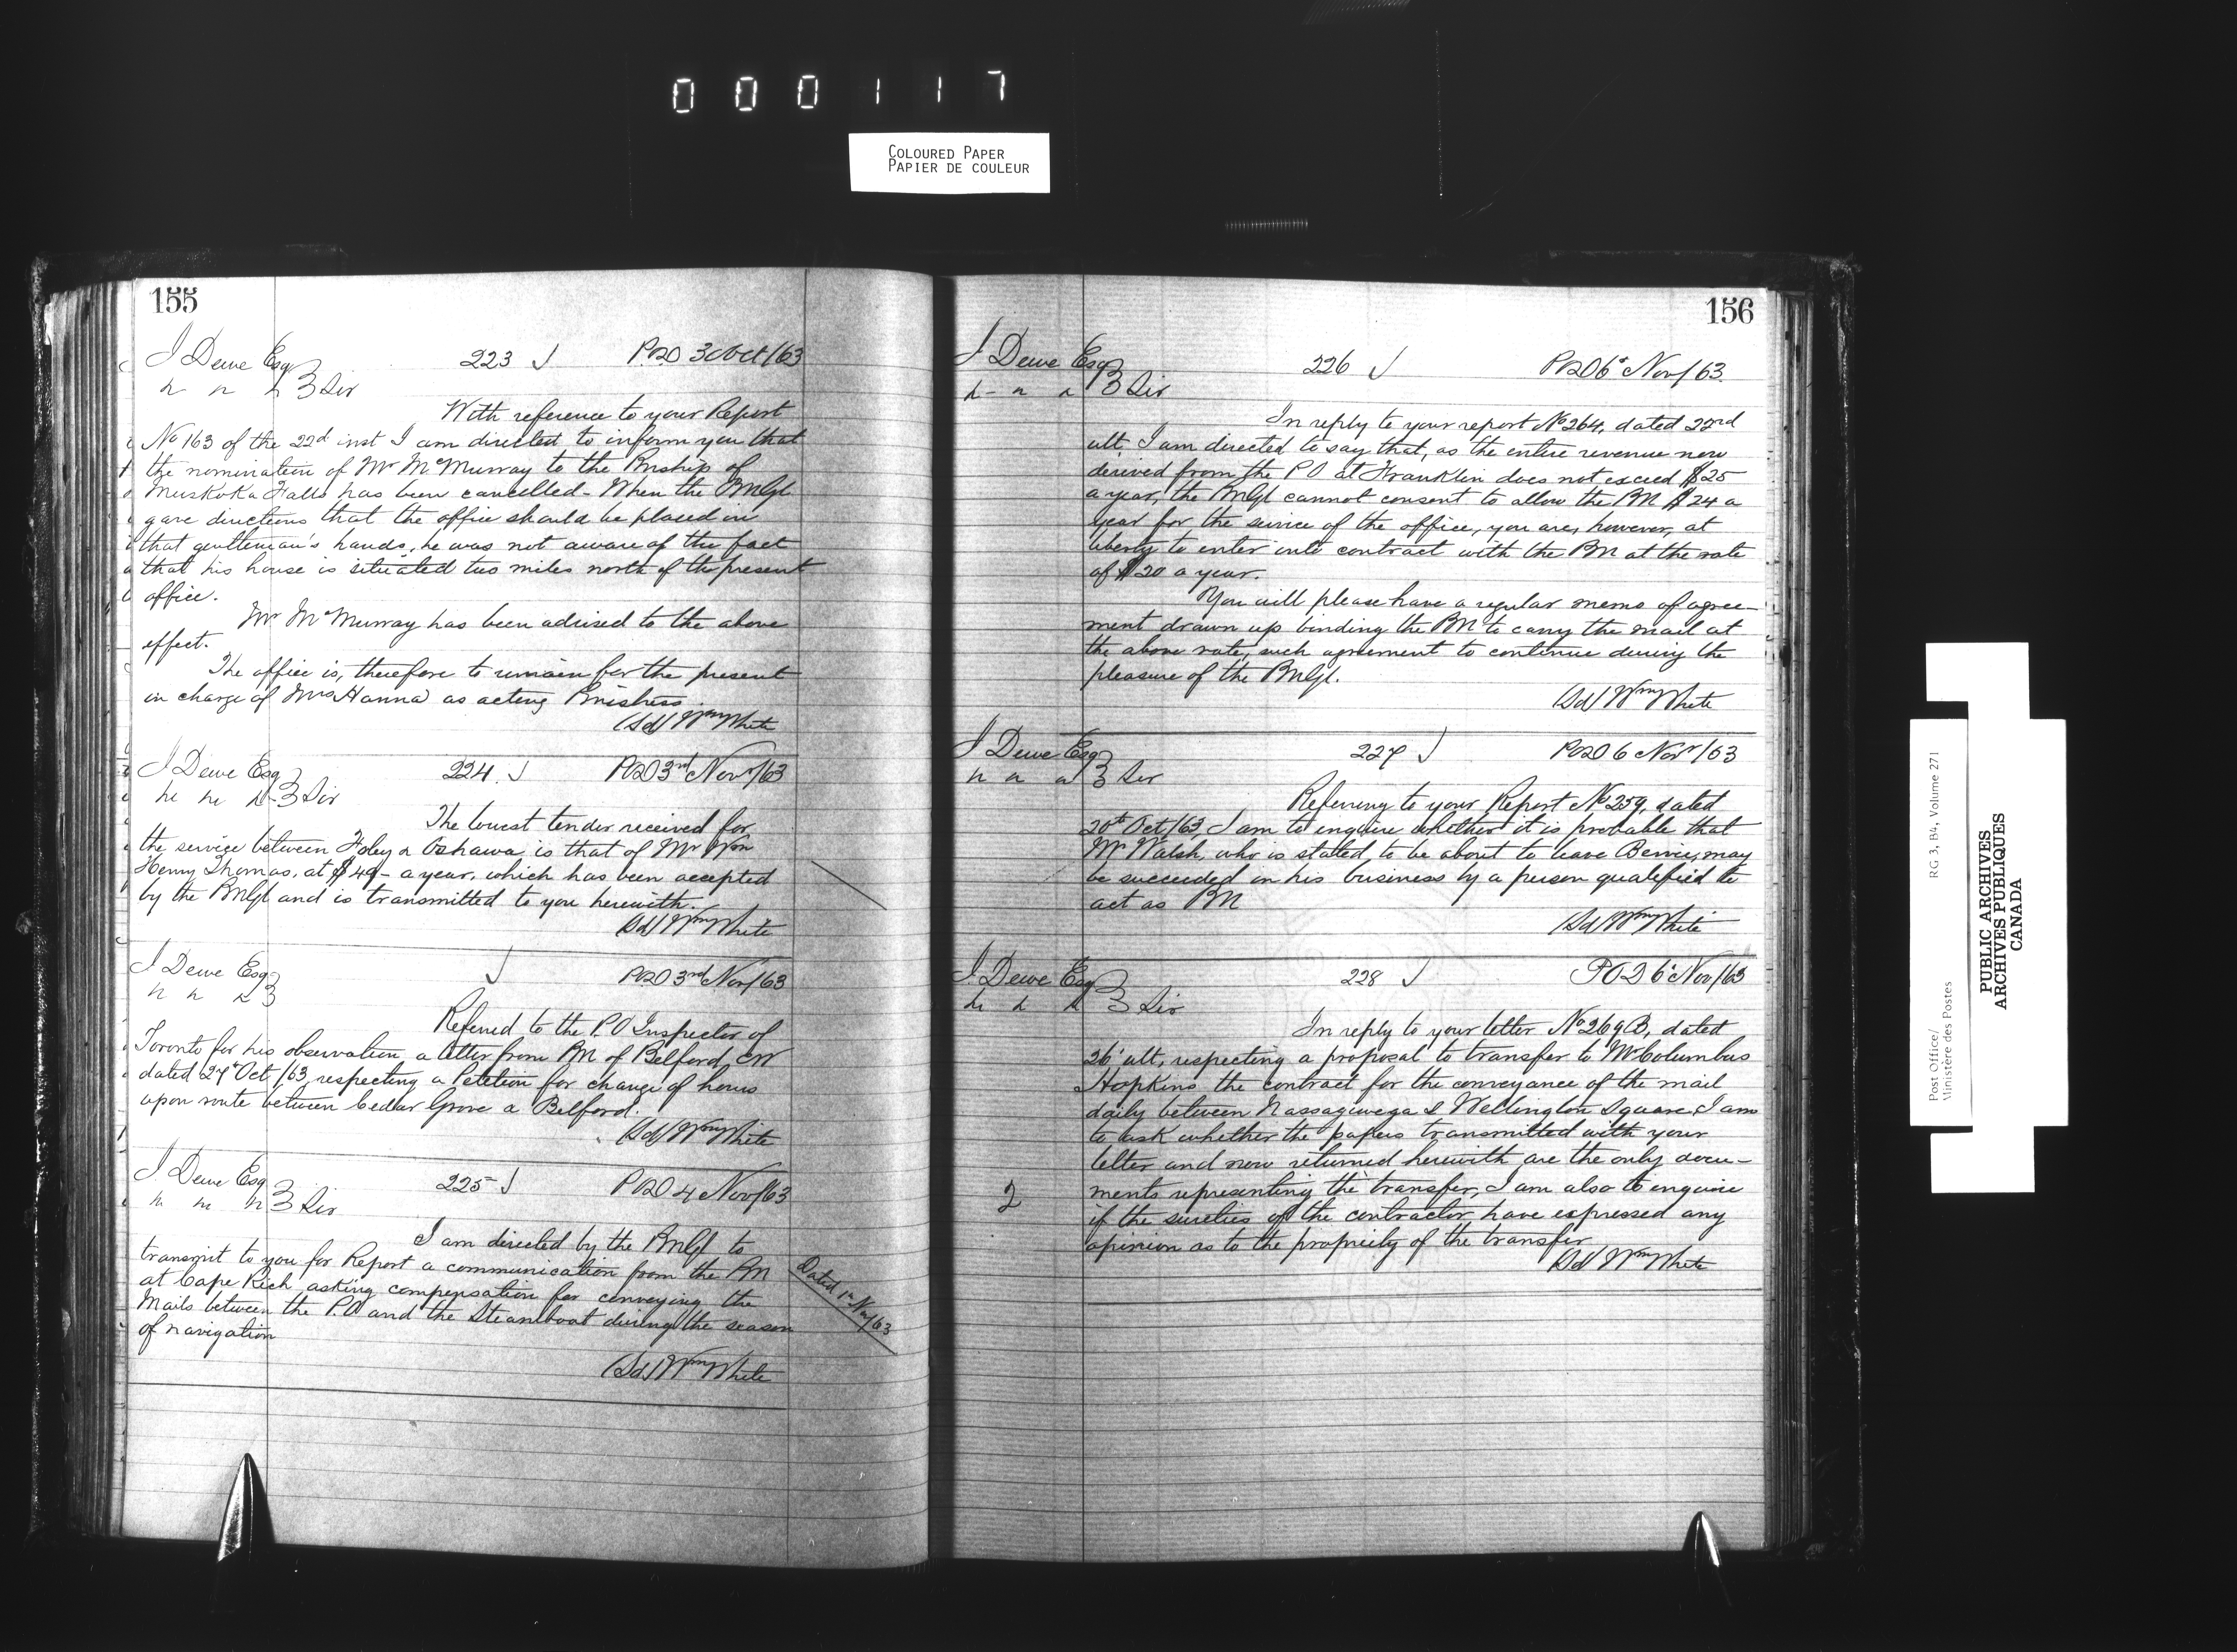 000117
COLOURED PAPER
PAPIER DE COULEUR
155
J Dewe Esq
223
P.O.D 30 Oct/63
Sir
With reference to your Report
No 163 of the 22d inst I am directed to inform you that
the nomination of Mr McMurray to the Pmship of
Muskoka Falls has been cancelled - When the PMGl
gave directions that the office should be placed in
that gentleman's hands, he was not aware of the fact
that his house is situated two miles north of the present
office.
Mr McMurray has been advised to the above
effect.
The office is, therefore to remain for the present
in charge of Mrs Hanna as acting Pmistress.
(Sd) Wm White
J Dewe Esq
224
POD 3rd Nov/63
Sir
The lowest tender received for
the service between Foley & Oshawa is that of Mr Wm
Henry Thomas, at $49 - a year, which has been accepted
by the PMGl and is transmitted to you herewith.
(Sd) Wm White
J Dewe Esq
POD 3rd Nov/63
Referred to the P.O Inspector of
Toronto for his observation a letter from PM of Belford, CW
dated 27 Oct/63, respecting a Petition for change of hours
upon route between Cedar Grove & Belford.
(Sd) Wm White
J. Dewe Esq
225
POD 4 Nov/63
Sir
I am directed by the PMGl to
transmit to you for Report a communication from the PM
at Cape Rich asking compensation for conveying the
Mails between the P.O and the Steamboat during the season
of navigation
Dated 1st Nov/63
(Sd) Wm White
156
J Dewe Esq
226
POD 6 Nov/63.
Sir
In reply to your report No 264, dated 22rd
ult, I am directed to say that, as the entire revenue now
derived from the PO at Franklin does not exceed $25
a year, the PMGl cannot consent to allow the PM $24 a
year for the service of the office, you are, however, at
liberty to enter into contract with the PM at the rate
of $20 a year.
You will please have a regular memo of agree-
ment drawn up binding the PM to carry the mail at
the above rate, such agreement to continue during the
pleasure of the PMGl.
(Sd) Wm White
J Dewe Esq
227
POD 6 Nov/63
Sir
Referring to your Report No 259, dated
20th Oct/63, I am to enquire whether it is probable that
Mr Walsh, who is stated to be about to leave Bervie, may
be succeeded in his business by a person qualified to
act as PM
(Sd) Wm White
J. Dewe Esq
228
POD 6 Nov/63
Sir
In reply to your letter No 269B, dated
26' ult, respecting a proposal to transfer to Mr Columbus
Hopkins the contract for the conveyance of the mail
daily between Nassagiwega & Wellington Square, I am
to ask whether the papers transmitted with your
letter and now returned herewith are the only docu-
2
ments representing the transfer, I am also to enquire
if the sureties of the contractor have expressed any
opinion as to the propriety of the transfer
(Sd) Wm White
Post Office/
Ministère des Postes
RG 3, B4, Volume 271
PUBLIC ARCHIVES
ARCHIVES PUBLIQUES
CANADA